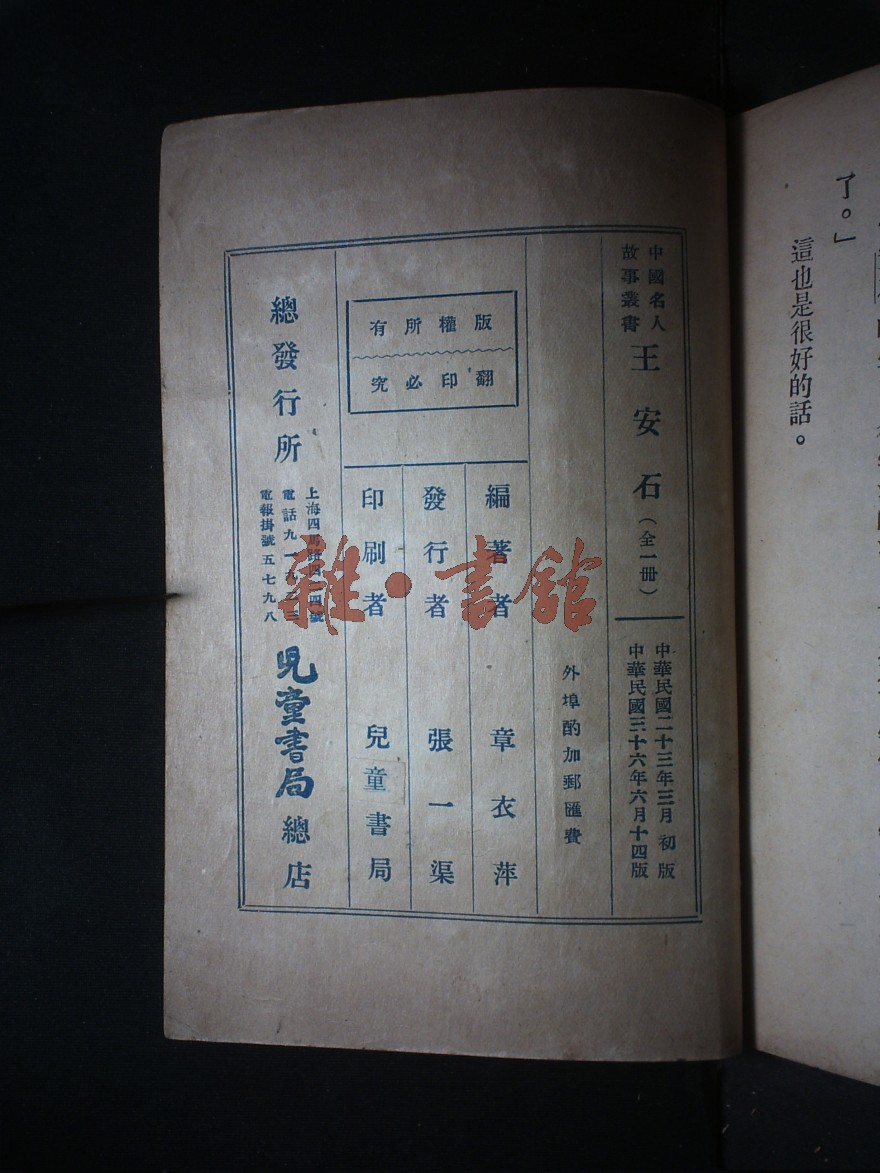 這也是很好的話。
了。」
中國名人
故事叢書
王安石(全一冊)
中華民國二十三年三月初版
中華民國三十六年六月十四版
外埠酌加郵匯費
版權所有
翻印必究
編著者 章衣萍
發行者 張一渠
印刷者 兒童書局
總發行所
電報掛號五七九八
兒童書局總店
雜·書館